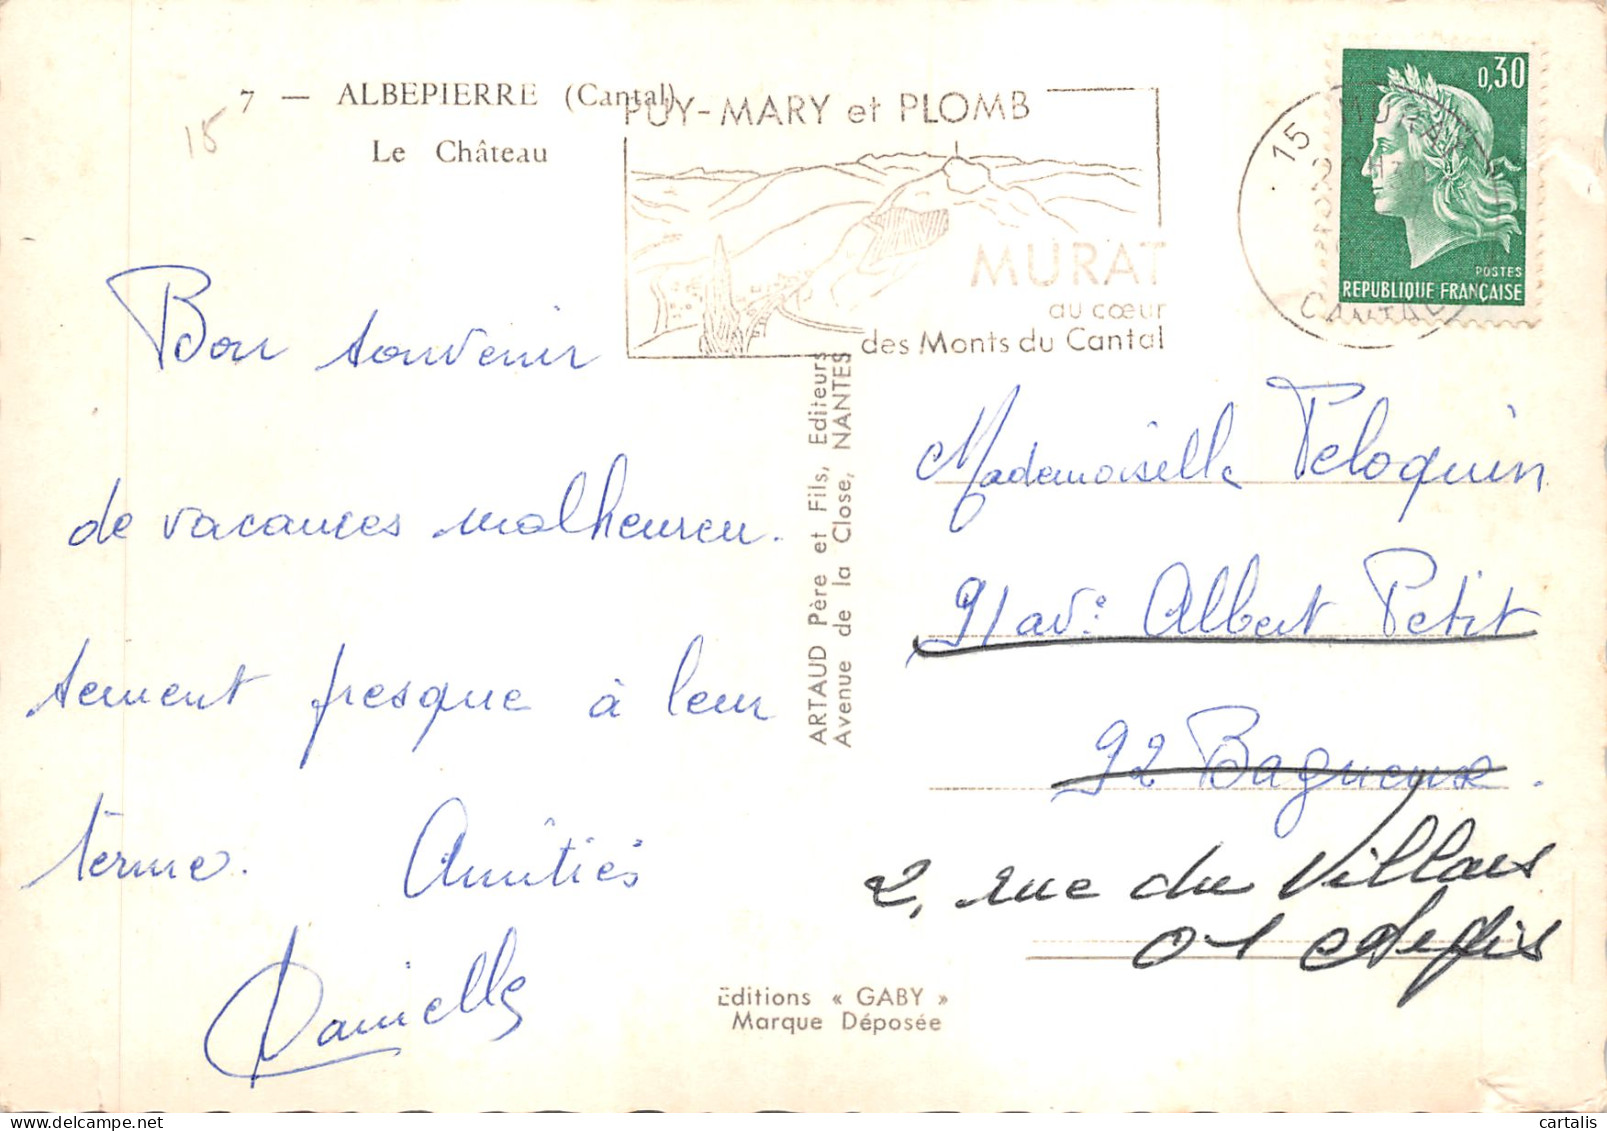 7 — ALBEPIERRE (Cantal)
Le Château
15
PUY-MARY et PLOMB
MURAT
au cœur
des Monts du Cantal
15 MURAT
CANTAL
0,30
POSTES
REPUBLIQUE FRANÇAISE
Bon souvenir
de vacances malheureu.
sement presque à leur
terme. Amitiés
Danielle
ARTAUD Père et Fils, Editeurs
Avenue de la Close, NANTES
Mademoiselle Peloquin
91 av: Albert Petit
92 Bagneux.
2, rue du Villars
01
Editions « GABY »
Marque Déposée
cartalis